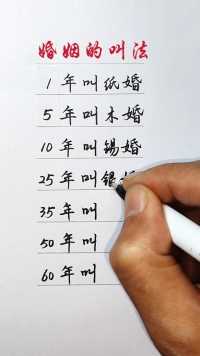 婚姻的叫法
1年叫纸婚
5年叫木婚
10年叫锡婚
25年叫银
35年叫
50年叫
60年叫